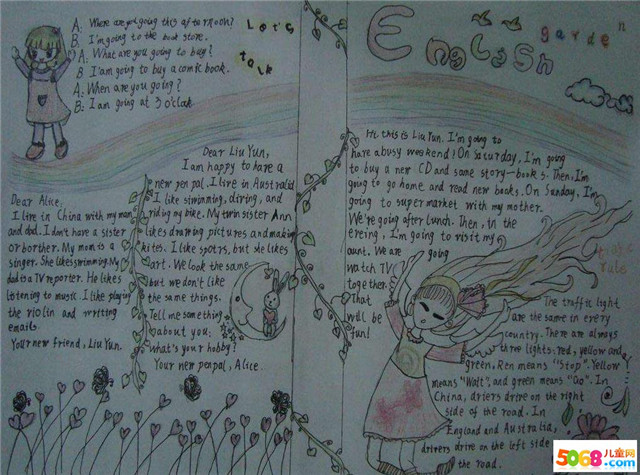 A: Where are you going this afternoon?
B: I'm going to the book store.
A: What are you going to buy?
B I am going to buy a comic book.
A: When are you going?
B: I am going at 3 o'clock
Let's
talk
English
garden
Dear Liu Yun,
I am happy to have a
new pen pal. I live in Australia
I like swimming, diving, and
riding my bike. My twin sister Ann
likes drawing pictures and making
kites. I like spotrs, but she likes
art. We look the same
but we don't like
the same things.
Tell me something
about you;
what's your hobby?
Your new penpal, Alice.
Dear Alice,
I live in China with my mom
and dad. I don't have a sister
or borther. My mom is a
singer. She likes swimming. My
dad is a TV reporter. He likes
listening to music. I like playing
the violin and writting
emails.
Your new friend, Liu Yun.
Hi, this is Liu Yun. I'm going to
have a busy weekend! On Saturday, I'm going
to buy a new CD and some story-books. Then, I'm
going to go home and read new books. On Sunday, I'm
going to super market with my mother.
We're going after lunch. Then, in the
evening, I'm going to visit my
aunt. We are going
watch TV
together.
That
will be
fun!
rules
The traffic light
are the same in every
country. There are always
three lights: red, yellow and
green, Ren means "Stop". Yellow
means "Wait", and green means "Go". In
China, driers drive on the right
side of the road. In
England and Australia,
drivers drive on the left side
the road.
5068儿童网
www.5068.com